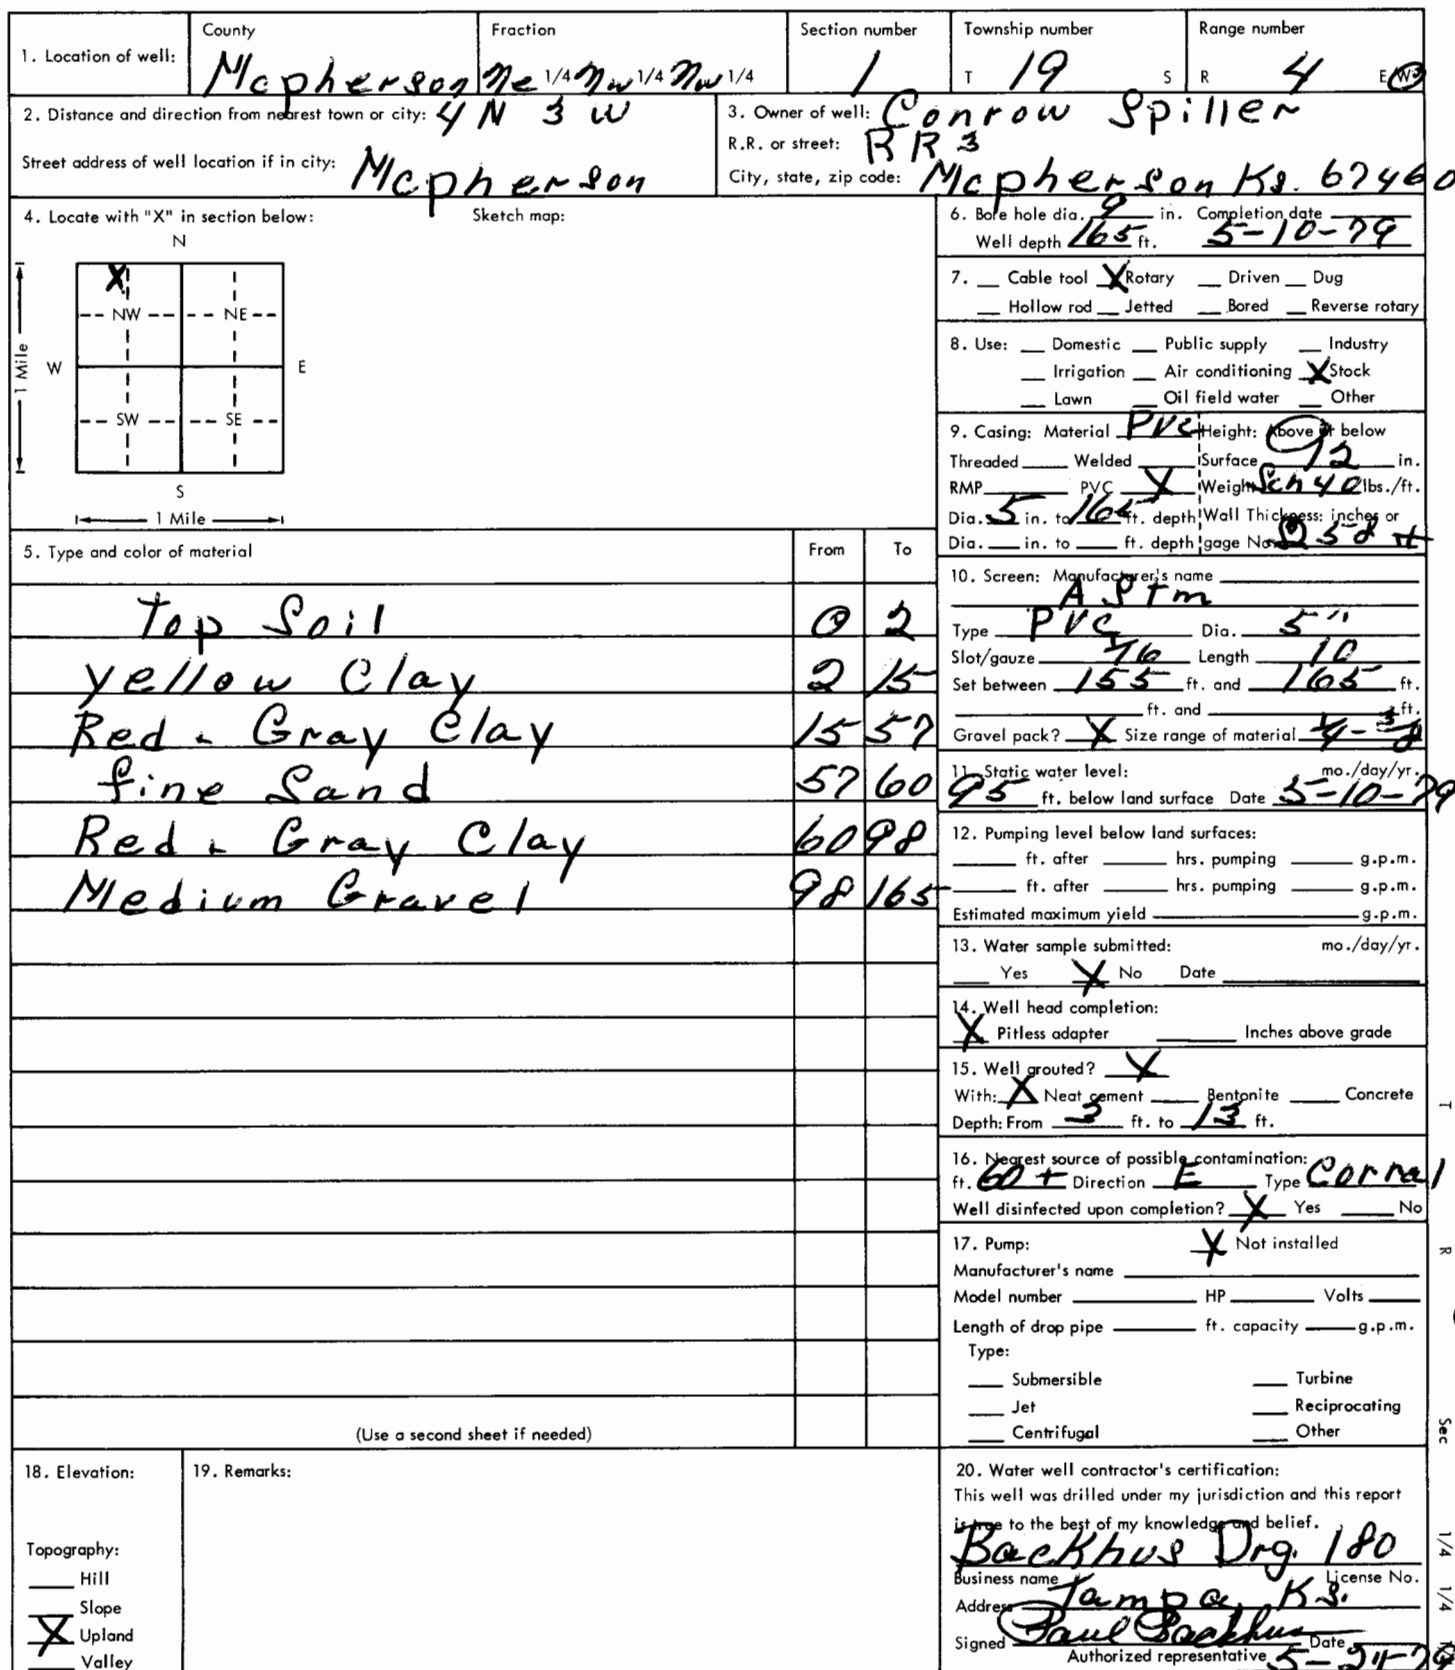 County Fraction Section number Township number Range number
1. Location of well: Mcpherson Ne 1/4 Nw 1/4 Nw 1/4 1 T 19 S R 4 E W
2. Distance and direction from nearest town or city: 4 N 3 W
Street address of well location if in city: Mcpherson
3. Owner of well: Conrow Spiller
R.R. or street: RR 3
City, state, zip code: Mcpherson Ks. 67460
4. Locate with "X" in section below: Sketch map:
N
X
NW NE
W E
1 Mile
SW SE
S
1 Mile
5. Type and color of material From To
Top Soil 0 2
yellow Clay 2 15
Red & Gray Clay 15 57
fine Sand 57 60
Red & Gray Clay 60 98
Medium Gravel 98 165
(Use a second sheet if needed)
6. Bore hole dia. 9 in. Completion date
Well depth 165 ft. 5-10-79
7. Cable tool X Rotary Driven Dug
Hollow rod Jetted Bored Reverse rotary
8. Use: Domestic Public supply Industry
Irrigation Air conditioning X Stock
Lawn Oil field water Other
9. Casing: Material PVC Height: Above or below
Threaded Welded Surface 12 in.
RMP PVC X Weight Sch 40 lbs./ft.
Dia. 5 in. to 165 ft. depth Wall Thickness: inches or
Dia. in. to ft. depth gage No. 258
10. Screen: Manufacturer's name
ASTm
Type PVC Dia. 5"
Slot/gauze 1/16 Length 10
Set between 155 ft. and 165 ft.
ft. and ft.
Gravel pack? X Size range of material 1/4 - 3/8
11. Static water level: mo./day/yr.
95 ft. below land surface Date 5-10-79
12. Pumping level below land surfaces:
ft. after hrs. pumping g.p.m.
ft. after hrs. pumping g.p.m.
Estimated maximum yield g.p.m.
13. Water sample submitted: mo./day/yr.
Yes X No Date
14. Well head completion:
X Pitless adapter Inches above grade
15. Well grouted? X
With: X Neat cement Bentonite Concrete
Depth: From 3 ft. to 13 ft.
16. Nearest source of possible contamination:
ft. 60 + Direction E Type Corral
Well disinfected upon completion? X Yes No
17. Pump: X Not installed
Manufacturer's name
Model number HP Volts
Length of drop pipe ft. capacity g.p.m.
Type:
Submersible Turbine
Jet Reciprocating
Centrifugal Other
18. Elevation:
Topography:
Hill
Slope
X Upland
Valley
19. Remarks:
20. Water well contractor's certification:
This well was drilled under my jurisdiction and this report
is true to the best of my knowledge and belief.
Backhus Drg. 180
Business name License No.
Address Tampa Ks.
Signed Paul Backhus Date
Authorized representative 5-24-79
T
R
Sec
1/4 1/4